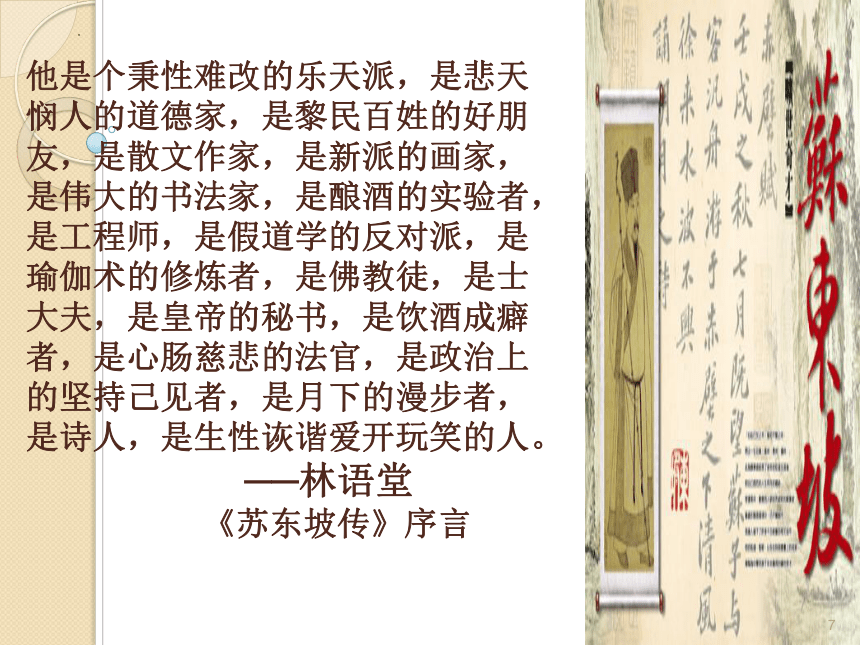 他是个秉性难改的乐天派，是悲天
悯人的道德家，是黎民百姓的好朋
友，是散文作家，是新派的画家，
是伟大的书法家，是酿酒的实验者，
是工程师，是假道学的反对派，是
瑜伽术的修炼者，是佛教徒，是士
大夫，是皇帝的秘书，是饮酒成癖
者，是心肠慈悲的法官，是政治上
的坚持己见者，是月下的漫步者，
是诗人，是生性诙谐爱开玩笑的人。
——林语堂
《苏东坡传》序言
蘇東坡
赤壁賦
壬戌之秋七月既望蘇子与
客汎舟游于赤壁之下清風
徐来水波不興
誦明月之詩
7